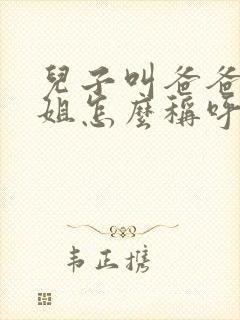 兒子叫爸爸
姐怎麼稱呼
韦正携